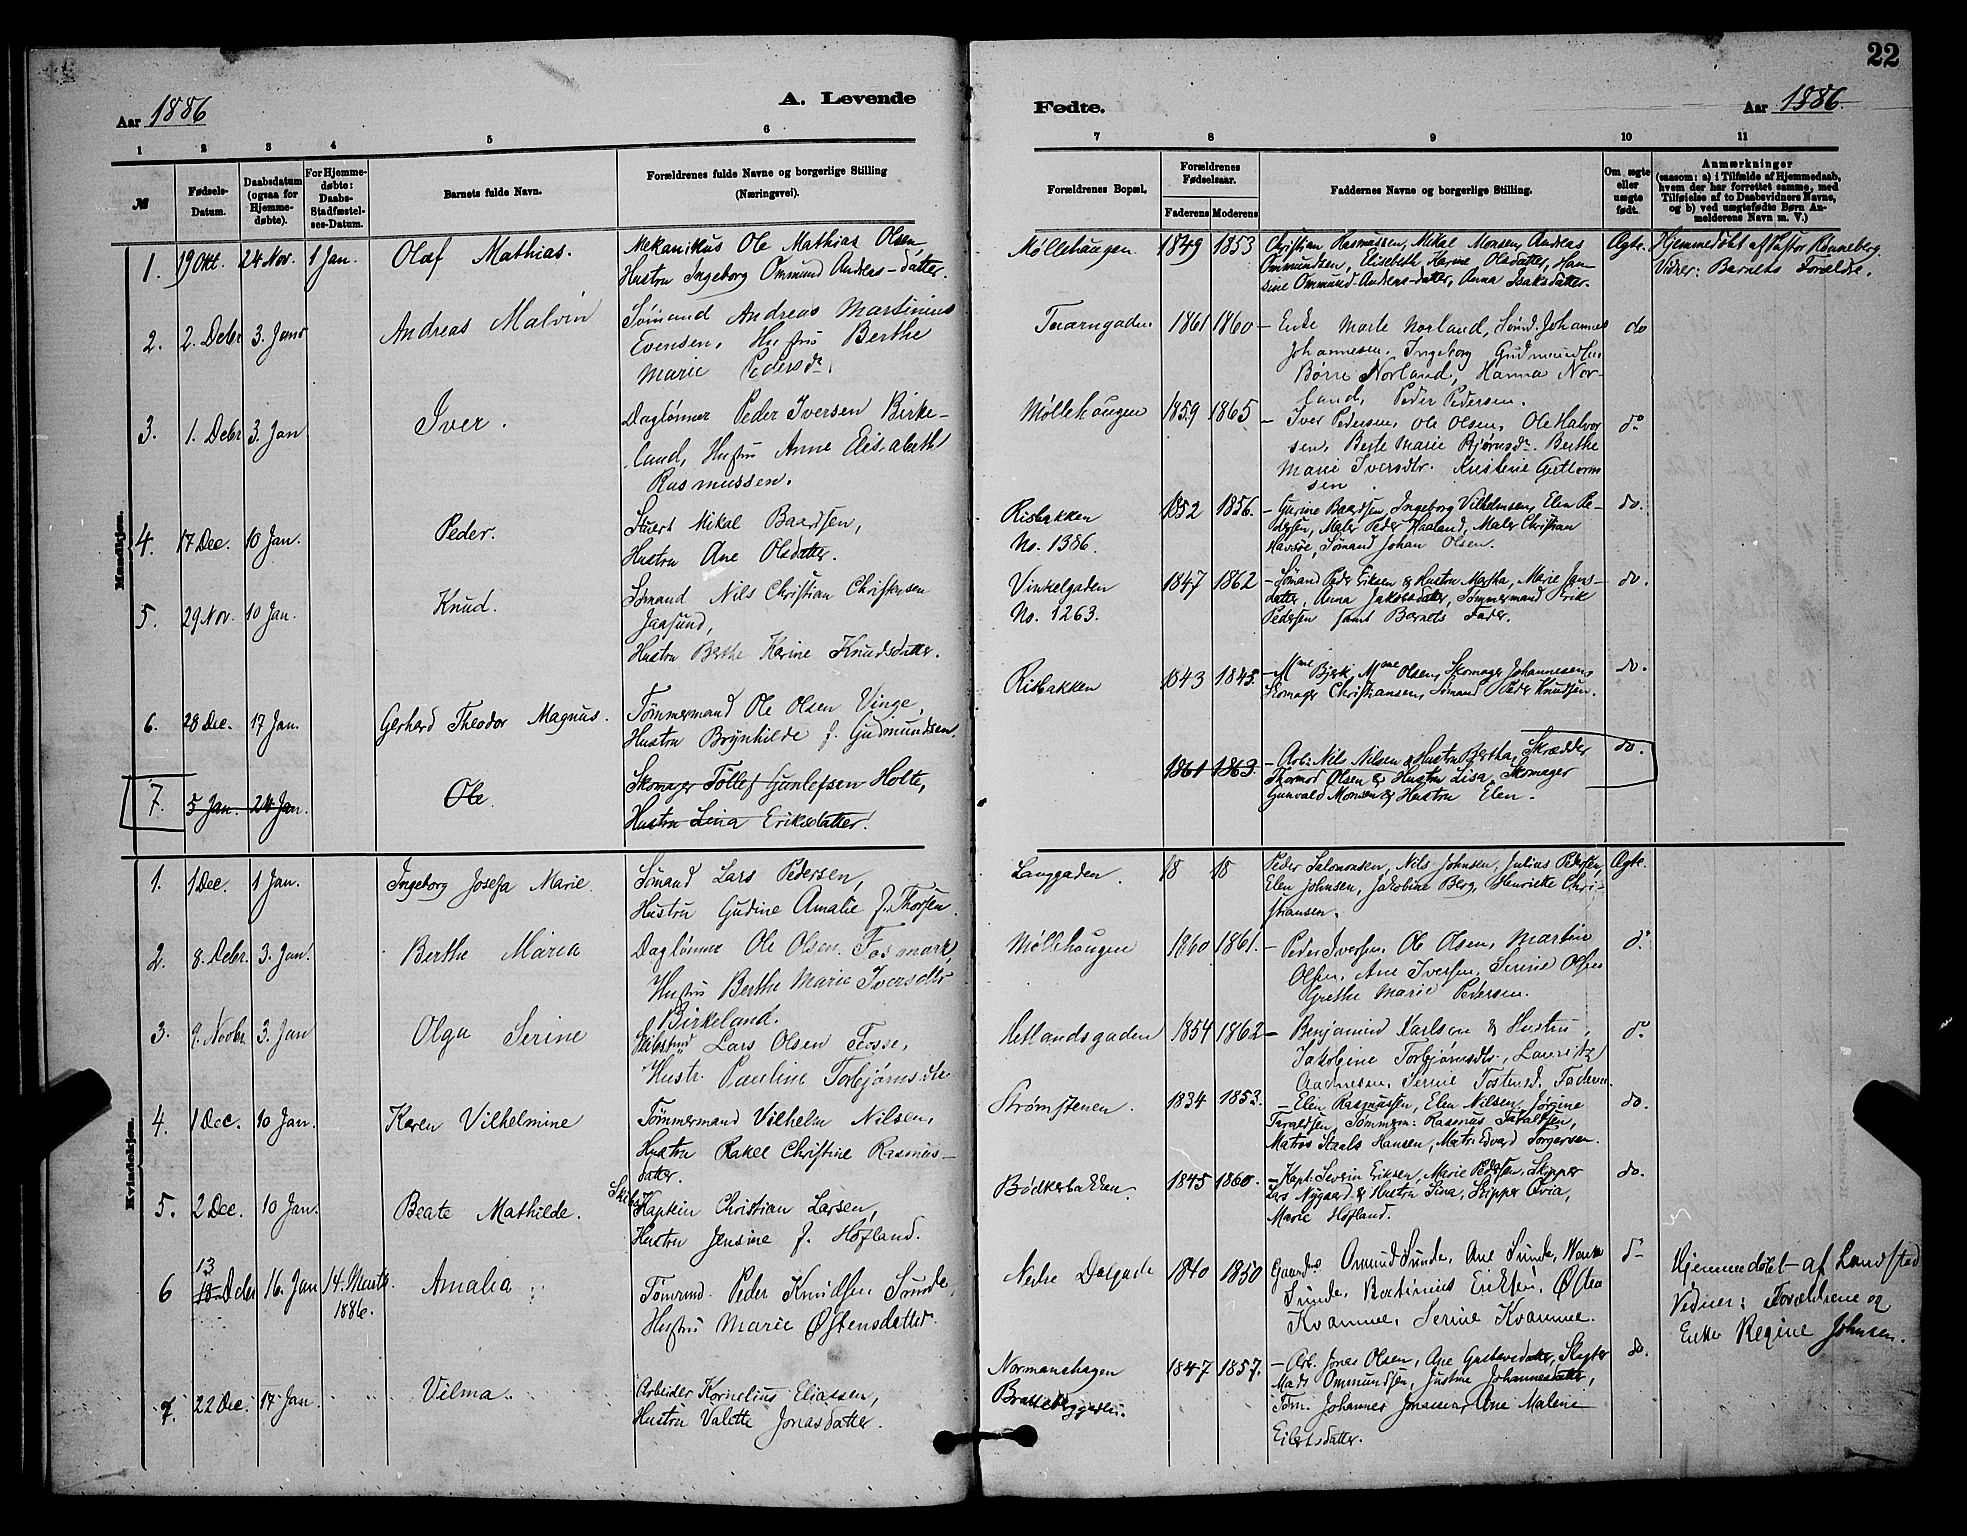 22
Aar 1886 A. Levende
Fødte. Aar 1886.
1 2 3 4 5 6 7 8 9 10 11
№
Fødsels-Datum.
Daabsdatum (ogsaa for Hjemmedøbte).
For Hjemmedøbte: Daabs-Stadfæstelses-Datum.
Barnets fulde Navn.
Forældrenes fulde Navne og borgerlige Stilling (Næringsvei).
Forældrenes Bopæl.
Forældrenes Fødselsaar.
Faderens Moderens
Faddernes Navne og borgerlige Stilling.
Om ægte eller uægte født.
Anmærkninger
(saasom: a) i Tilfælde af Hjemmedaab,
hvem der har forrettet samme, med
Tilføielse af to Daabsvidners Navne,
og b) ved uægtefødte Børn Anmelderens Navn m. V.)
Mandkjøn.
1. 19 Okt. 24 Nov. 1 Jan. Olaf Mathias.
Mekanikus Ole Mathias Olsen,
Hustru Ingeborg Ommund Andreas-datter.
Møllehaugen 1849 1853
Christian Rasmussen, Mikal Monsen, Andreas
Ommundsen, Elisabeth Karine Olsdatter, Han-
sine Ommund-Andreas-datter, Anna Isaksdatter.
Ægte.
Hjemmedøbt af Pastor Rønneberg.
Vidner: Barnets Forældre.
2. 2. Debr 3. Janr Andreas Malvin
Sømand Andreas Martinius
Evensen, Hustru Berthe
Marie Pedersdr.
1861 1860
– Enke Marte Norland, Sømd. Johannes
Johannesen, Ingeborg
Børre Norland, Hanna Nor-
land, Peder Pedersen.
do
3. 1. Debr 3. Jan Iver.
Daglønner Peder Iversen Birke-
land, Hustru Anne Elisabeth
Rasmussen.
Møllehaugen 1859 1865
– Iver Pedersen, Ole Olsen, Ole Halvor
sen, Berte Marie Bjørnsdr. Berthe
Marie Iversdtr. Kristene Guttorm
sen
do
4. 17 Dec. 10 Jan. Peder.
Mikal Baardsen,
Hustru Ane Olsdatter.
Risbakken
No. 1386.
1852 1856.
– Gurine Baardsen, Ingeborg Vilhelmsen, Elen Pe-
dersen, Maler Peder Haaland, Maler Christian
Havsøe, Sømand Johan Olsen.
do.
5. 29 Nov. 10 Jan. Knud.
Sømand Nils Christian Christensen
Jaasund,
Hustru Berthe Karine Knudsdatter.
Vinkelgaden
No. 1263.
1847 1862
– Sømand Peder Eriksen & Hustru Martha, Marie Jans-
datter, Anna Jakobsdatter, Tømmermand Erik
Pedersen samt Barnets Fader.
do.
6. 28 Dec. 17 Jan. Gerhard Theodor Magnus.
Tømmermand Ole Olsen Vinge,
Hustru Brynhilde f. Gudmundsen.
Risbakken 1843 1845.
– Mme Bjerk, Mme Olsen, Skomager Johannesen,
Skomager Christiansen, Sømand Peder Knudsen.
do.
7. 5 Jan. 24 Jan. Ole.
Skomager Tollef Gunlefsen Holte,
Hustru Lina Eriksdatter.
1861 1863.
– Arb. Nils Nilsen & Hustru Bertha, Skrædder
Thormod Olsen & Hustru Lisa, Skomager
Gunvald Monsen & Hustru Elen.
do.
Kvindekjøn.
1. 1 Dec. 1 Jan. Ingeborg Josefa Marie.
Sømand Lars Pedersen,
Hustru Gudine Amalie f. Thorsen.
Langgaden. 18 18
Peder Salomonsen, Nils Johnsen, Julius Pedersen,
Elen Johnsen, Jakobine Berg, Henriette Chri-
stiansen.
Ægte.
2. 8. Debr. 3. Jan. Berthe Maria
Daglønner Ole Olsen Fosmark,
Hustru Berthe Marie Iversdtr
Birkeland.
Møllehaugen 1860 1861.
– Peder Iversen, Ole Olsen, Martin
Olsen, Ane Iversen, Serine Olsen
Grethe Marie Pedersen.
do
3. 9. Novbr. 3. Jan Olga Serine
Lars Olsen Fosse,
Hustr. Pauline Torbjørnsdtr
Hetlandsgaden 1854 1862
– Benjamin Karlson & Hustru,
Jakobine Torbjørnsdtr., Lauritz
Aadnesen, Serine Fadern.
do
4. 1 Dec. 10 Jan. Karen Vilhelmine
Tømmermand Vilhelm Nilsen,
Hustru Rakel Christine Rasmus-
datter.
Strømstenen. 1834 1853.
– Elen Rasmussen, Elen Nilsen, Jørgine
Taraldsen, Tømmerm: Rasmus Taraldsen,
Matros Staale Hansen, Matr. Edvard Torgersen.
do.
5. 2 Dec. 10 Jan. Beate Mathilde.
Skibs
Kaptein Christian Larsen,
Hustru Jensine f. Høfland.
Bødkerbakken. 1845 1860.
– Kapt. Severin Eriksen, Marie Pedersen, Skipper
Lars Nygaard & Hustru Lina, Skipper
Marie Høfland.
do.
6 13 18 Debr 16. Jan 14. Marts 1886. Amalia
Tømrmd. Peder Knudsen Sunde,
Hustru Marie Østensdatter.
Nedre Dalgade 1840 1850
Gaardm. Omund Sunde, Ane Sunde,
Sunde, Bertinius Eriksen, Østen
Kvamme, Serine Kvamme.
do
Hjemmedøbt af Landstad
Vidner: Forældrene og
Enke Regine Johnsen.
7. 22 Dec. 17 Jan. Vilma.
Arbeider Kornelius Eliassen,
Hustru Valette Jonasdatter.
Normanshagen
1847 1857.
– Arb. Jonas Olsen, Ane Gustavsdatter, Slagter
Mads Ommundsen, Justine Johannesdatter,
Tøm. Johannes Jonassen, Ane Malene
Eilertsdatter.
do.